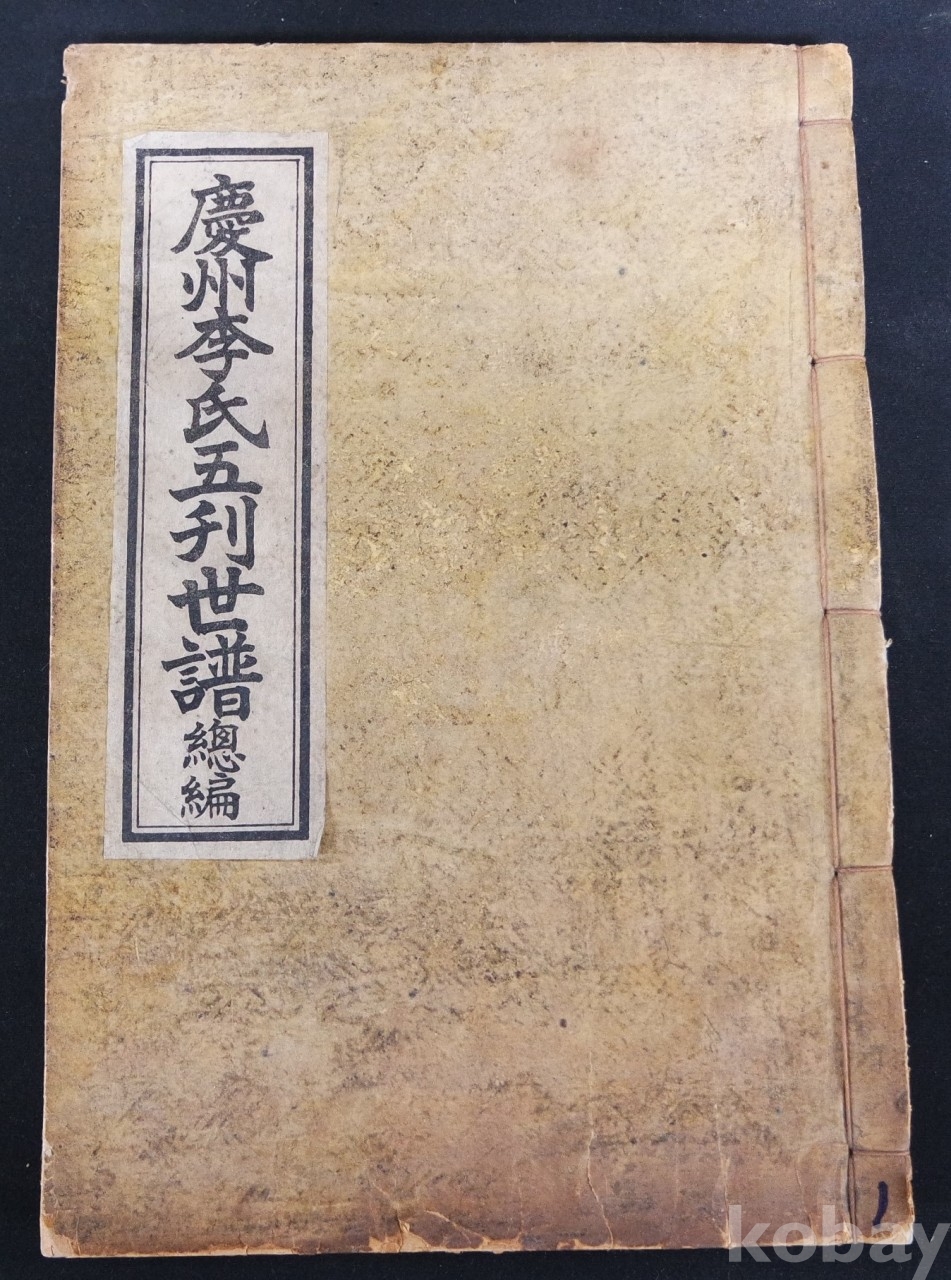 慶州李氏五刊世譜總編
kobay